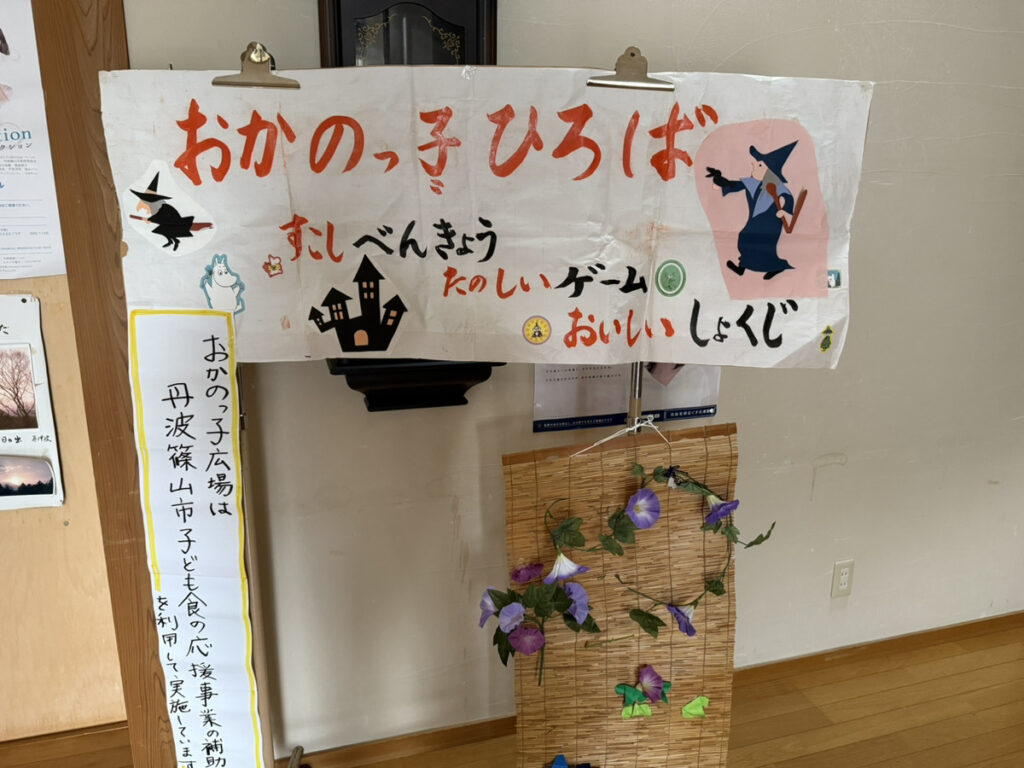 おかのっ子ひろば
すこしべんきょう
たのしいゲーム
おいしいしょくじ
おかのっ子広場は
丹波篠山市子ども食の応援事業の補助
を利用して、実施しています
tion
クション